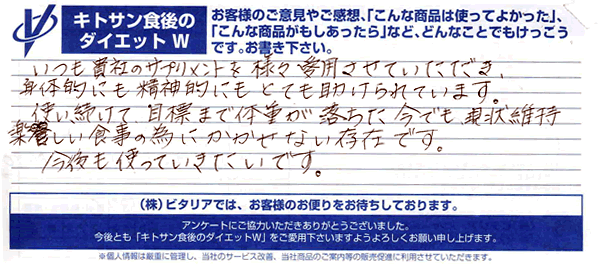 キトサン食後の
ダイエット W
お客様のご意見やご感想、「こんな商品は使ってよかった」、
「こんな商品がもしあったら」など、どんなことでもけっこう
です。お書き下さい。
いつも貴社のサプリメントを様々愛用させていただき、
身体的にも精神的にもとても助けられています。
使い続けて目標まで体重が落ちた今でも現状維持
楽しい食事の為にかかせない存在です。
今後も使っていきたいです。
(株)ビタリアでは、お客様のお便りをお待ちしております。
アンケートにご協力いただきありがとうございました。
今後とも「キトサン食後のダイエットW」をご愛用下さいますようよろしくお願い申し上げます。
※個人情報は厳重に管理し、当社のサービス改善、当社商品のご案内等の販売促進に利用させていただきます。